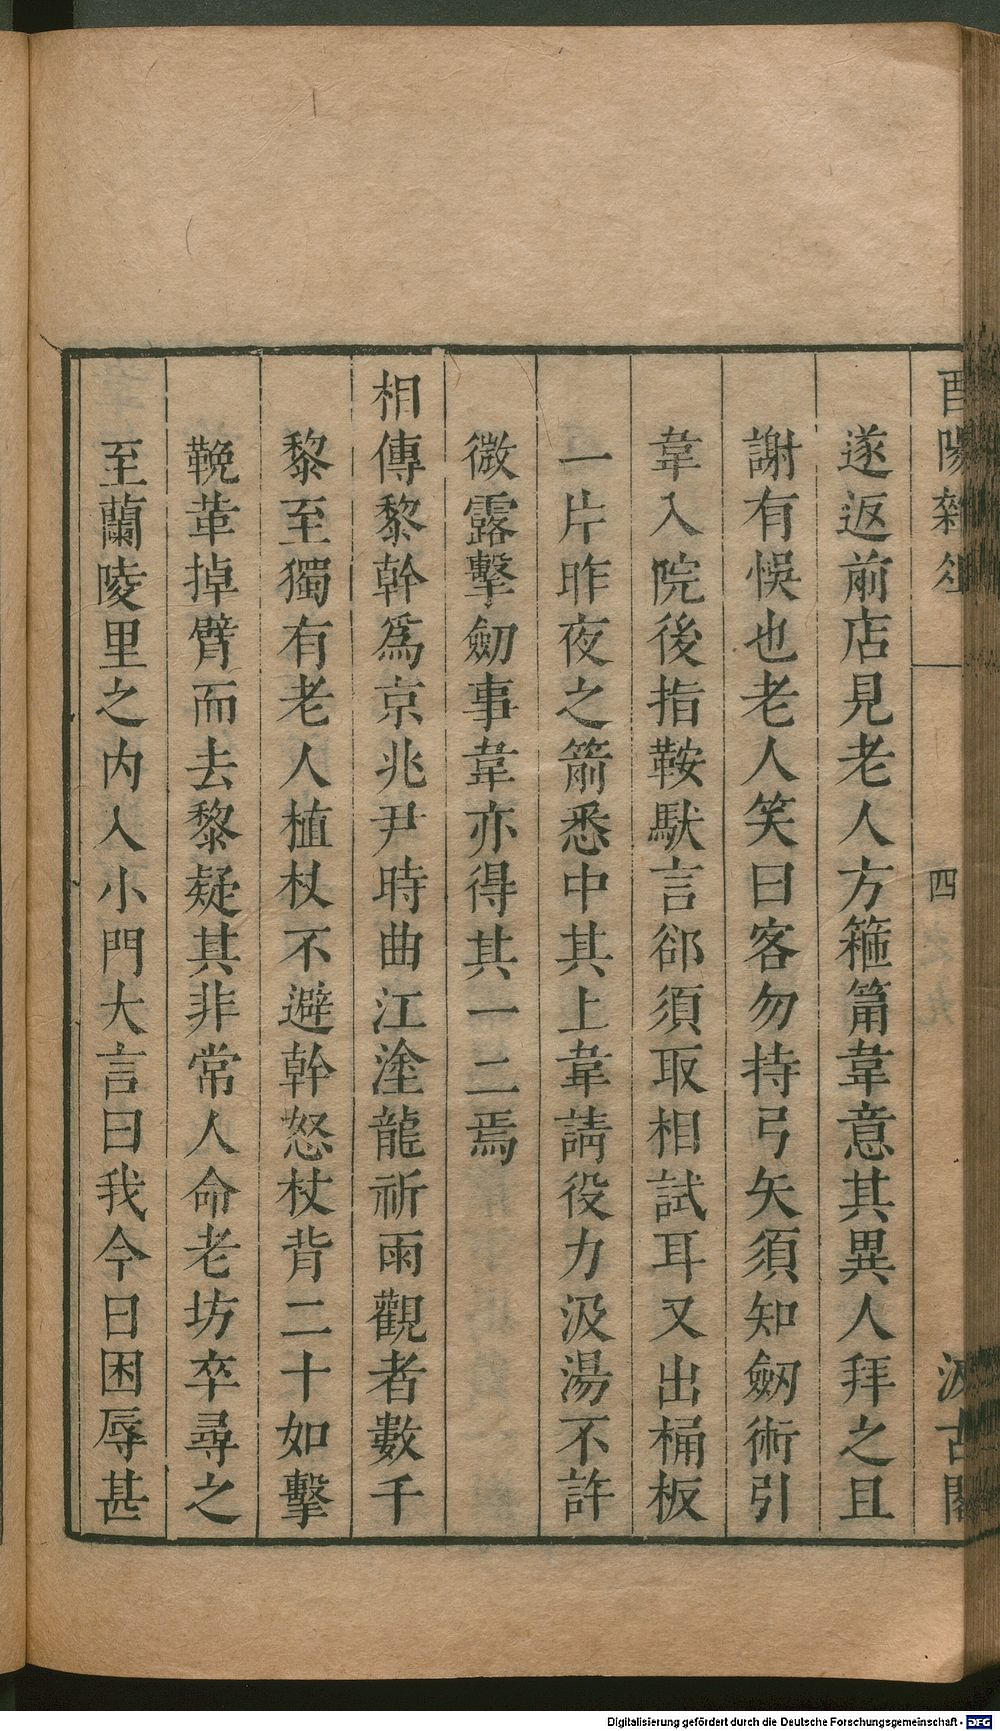 酉陽雜俎
四
汲古閣
遂返前店見老人方箍筩韋意其異人拜之且
謝有悞也老人笑曰客勿持弓矢須知劒術引
韋入院後指鞍馱言郤須取相試耳又出桶板
一片昨夜之箭悉中其上韋請役力汲湯不許
微露擊劒事韋亦得其一二焉
相傳黎幹爲京兆尹時曲江塗龍祈雨觀者數千
黎至獨有老人植杖不避幹怒杖背二十如擊
鞔革掉臂而去黎疑其非常人命老坊卒尋之
至蘭陵里之内入小門大言曰我今日困辱甚
Digitalisierung gefördert durch die Deutsche Forschungsgemeinschaft - DFG